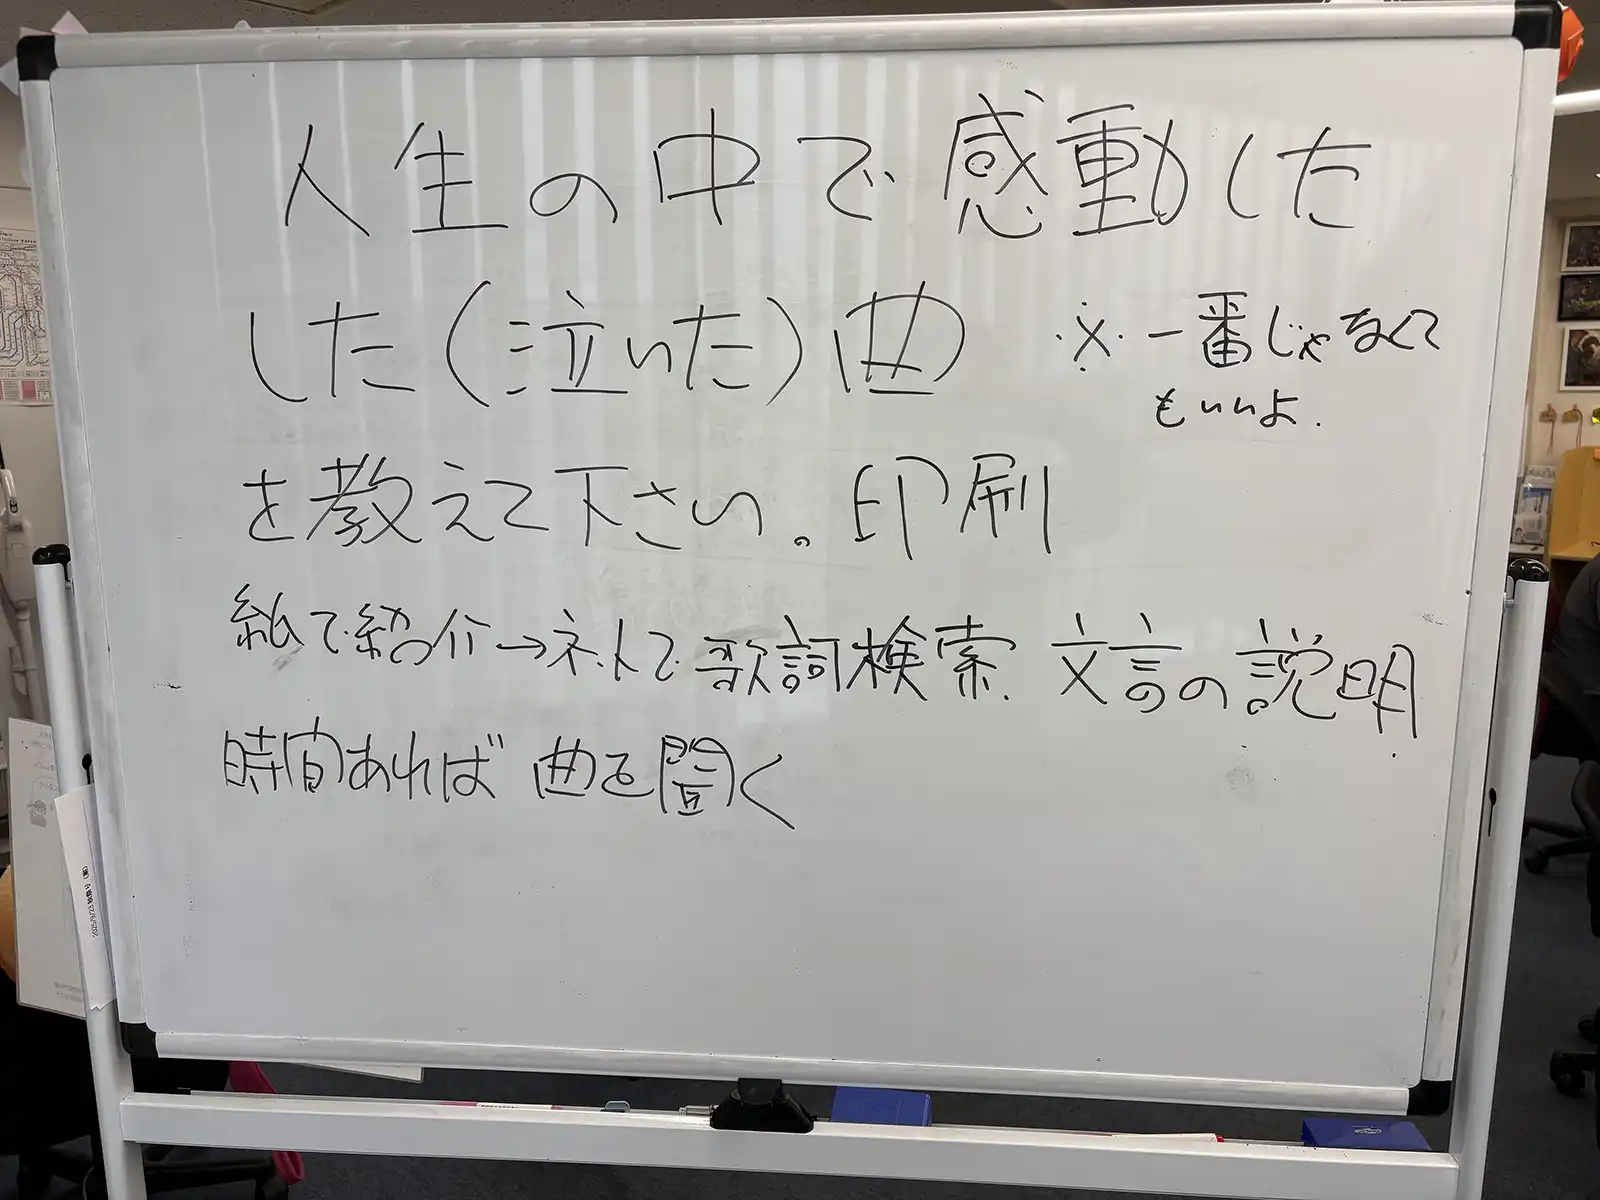 人生の中で感動した
した(泣いた)曲
※一番じゃなくて
もいいよ.
を教えて下さい。印刷
紙で紹介→ネットで歌詞検索. 文言の説明.
時間あれば 曲を聞く